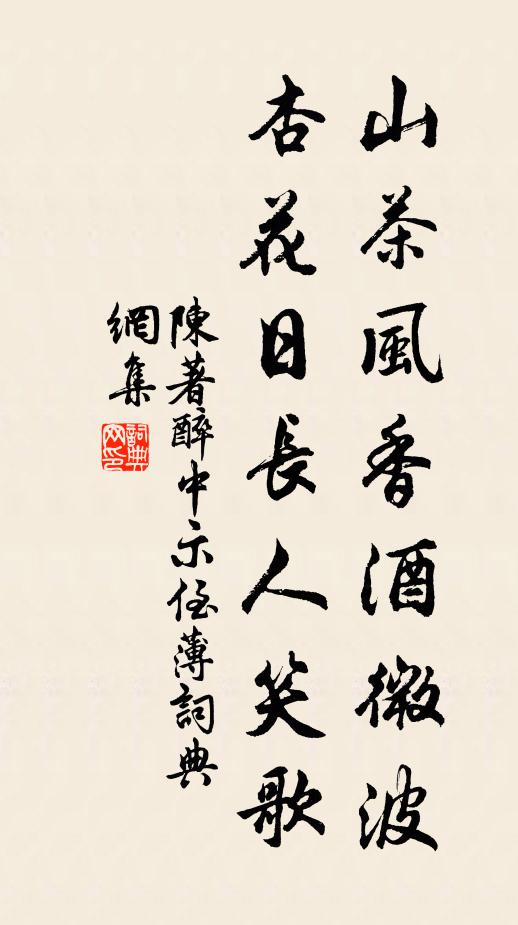 山茶風香酒微波
杏花日長人笑歌
陳著醉中示侄薄詞典
網集
詞典
网印